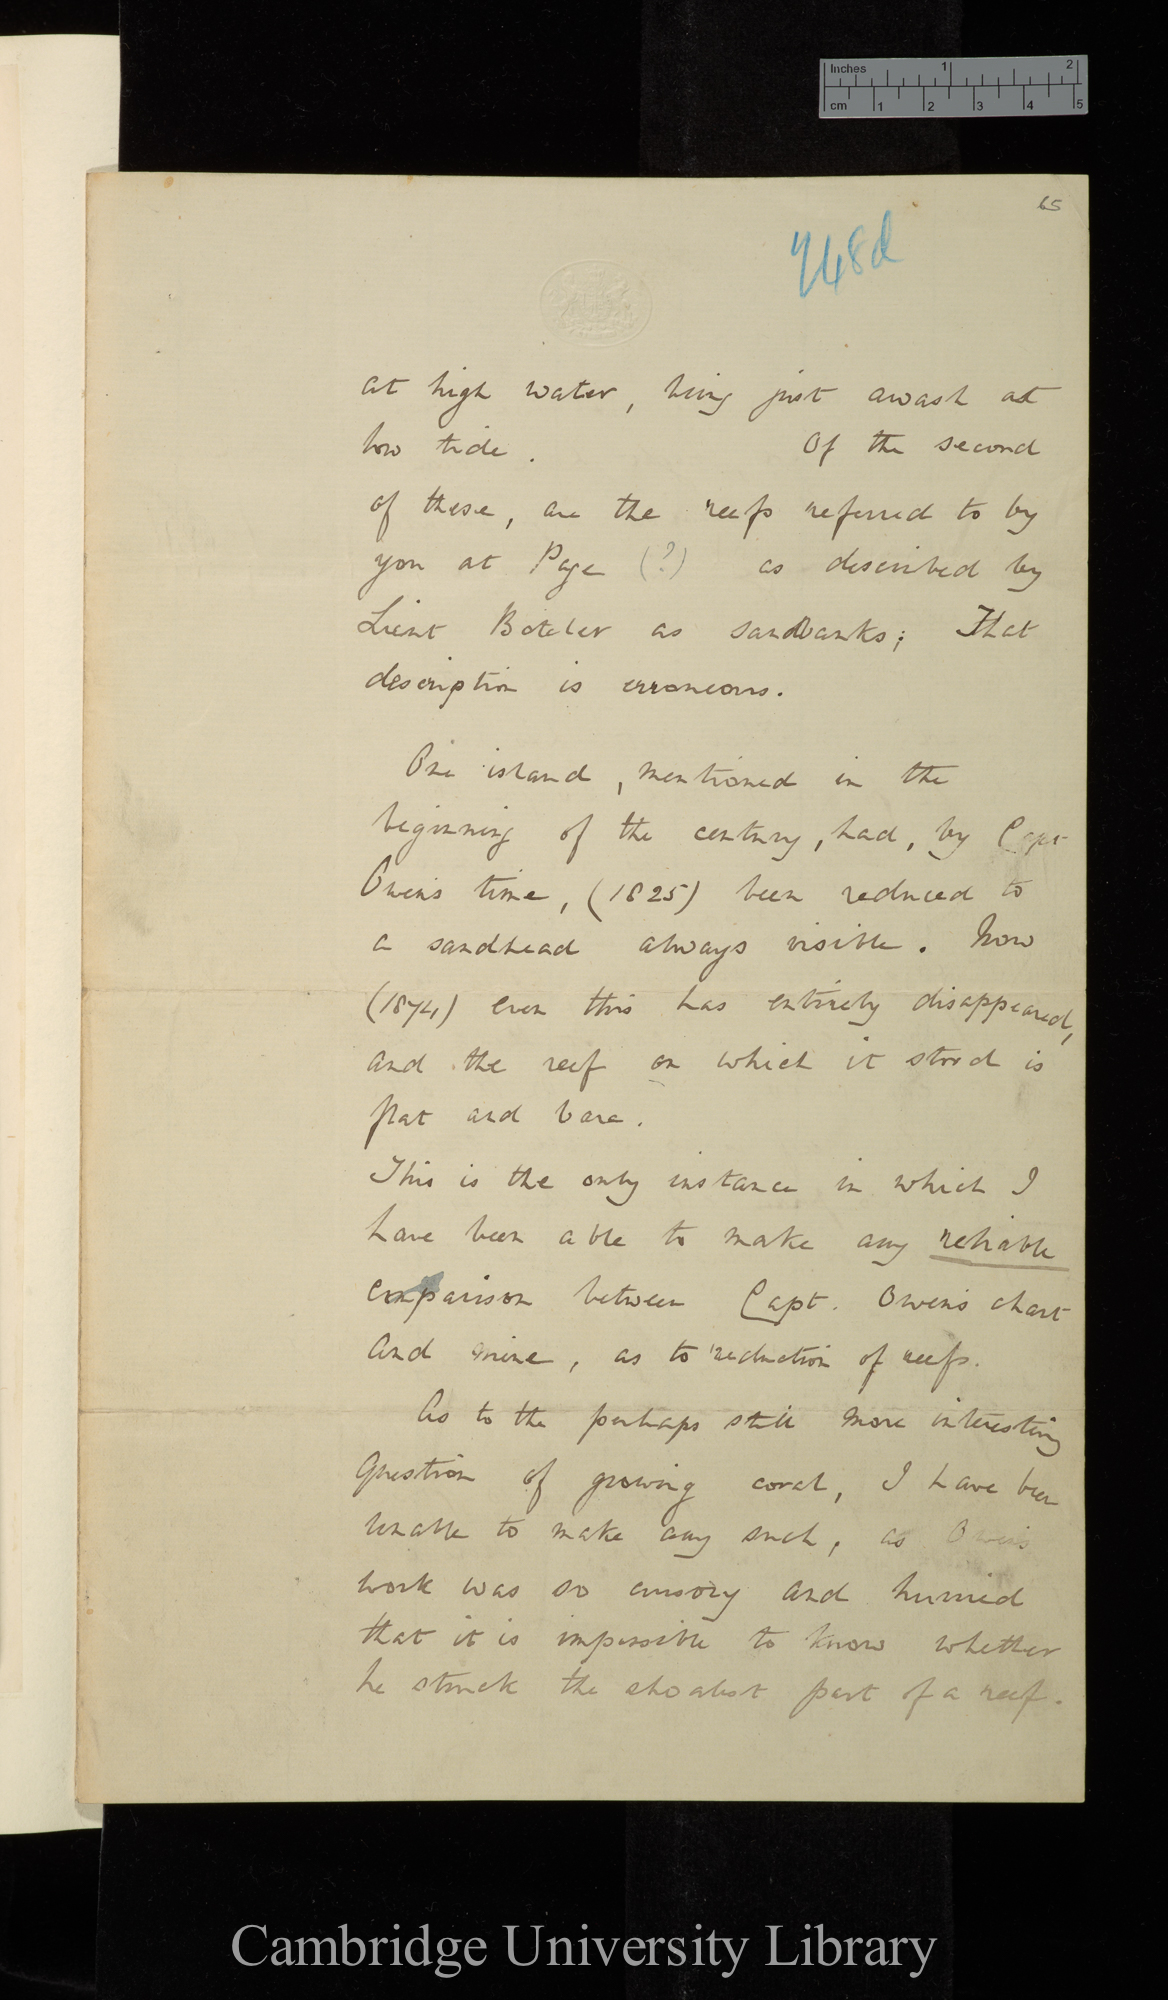 Inches 1 2
cm 1 2 3 4 5
65
248d
at high water, being just awash at
low tide. Of the second
of these, are the reefs referred to by
you at Page (?) as described by
Lieut Boteler as sandbanks; That
description is erroneous.
One island, mentioned in the
beginning of the century, had, by Capt
Owen's time, (1825) been reduced to
a sandhead always visible. Now
(1874) even this has entirely disappeared,
and the reef on which it stood is
flat and bare.
This is the only instance in which I
have been able to make any reliable
comparison between Capt. Owen's chart
and mine, as to reduction of reefs.
As to the perhaps still more interesting
question of growing coral, I have been
unable to make any such, as Owen's
work was so cursory and hurried
that it is impossible to know whether
he struck the shoalest part of a reef.
Cambridge University Library